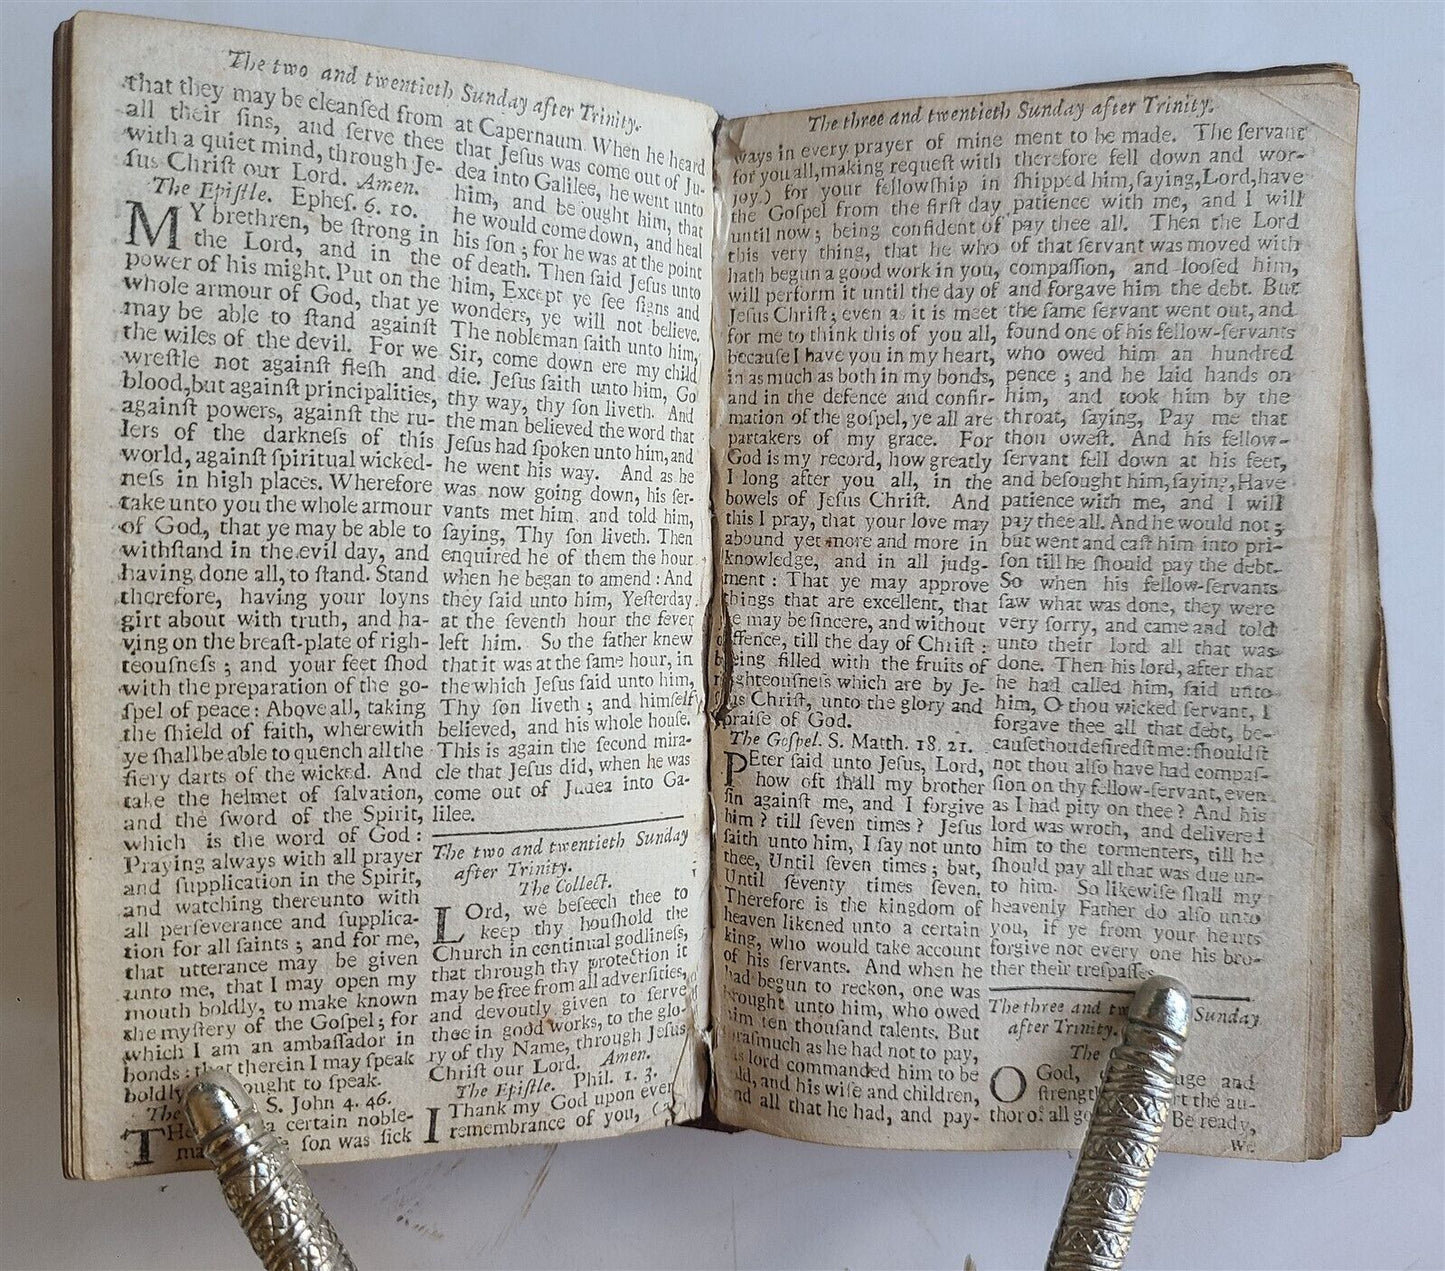 The two and twentieth Sunday after Trinity.
that they may be cleanſed from
all their ſins, and ſerve thee
with a quiet mind, through Je-
ſus Chriſt our Lord. Amen.
The Epiſtle. Epheſ. 6. 10.
MY brethren, be ſtrong in
the Lord, and in the
power of his might. Put on the
whole armour of God, that ye
may be able to ſtand againſt
the wiles of the devil. For we
wreſtle not againſt fleſh and
blood, but againſt principalities,
againſt powers, againſt the ru-
lers of the darkneſs of this
world, againſt ſpiritual wicked-
neſs in high places. Wherefore
take unto you the whole armour
of God, that ye may be able to
withſtand in the evil day, and
having done all, to ſtand. Stand
therefore, having your loyns
girt about with truth, and ha-
ving on the breaſt-plate of righ-
teouſneſs; and your feet ſhod
with the preparation of the go-
ſpel of peace: Above all, taking
the ſhield of faith, wherewith
ye ſhall be able to quench all the
fiery darts of the wicked. And
take the helmet of ſalvation,
and the ſword of the Spirit,
which is the word of God:
Praying always with all prayer
and ſupplication in the Spirit,
and watching thereunto with
all perſeverance and ſupplica-
tion for all ſaints; and for me,
that utterance may be given
unto me, that I may open my
mouth boldly, to make known
the myſtery of the Goſpel; for
which I am an ambaſſador in
bonds: that therein I may ſpeak
boldly ought to ſpeak.
The S. John 4. 46.
THe a certain noble-
ma ſon was ſick
at Capernaum. When he heard
that Jeſus was come out of Ju-
dea into Galilee, he went unto
him, and be ought him, that
he would come down, and heal
his ſon; for he was at the point
of death. Then ſaid Jeſus unto
him, Except ye ſee ſigns and
wonders, ye will not believe.
The nobleman ſaith unto him,
Sir, come down ere my child
die. Jeſus ſaith unto him, Go
thy way, thy ſon liveth. And
the man believed the word that
Jeſus had ſpoken unto him, and
he went his way. And as he
was now going down, his ſer-
vants met him and told him,
ſaying, Thy ſon liveth. Then
enquired he of them the hour
when he began to amend: And
they ſaid unto him, Yeſterday
at the ſeventh hour the fever
left him. So the father knew
that it was at the ſame hour, in
the which Jeſus ſaid unto him,
Thy ſon liveth; and himſelf
believed, and his whole houſe.
This is again the ſecond mira-
cle that Jeſus did, when he was
come out of Judea into Ga-
lilee.
The two and twentieth Sunday
after Trinity.
The Collect.
LOrd, we beſeech thee to
keep thy houſhold the
Church in continual godlineſs,
that through thy protection it
may be free from all adverſities,
and devoutly given to ſerve
thee in good works, to the glo-
ry of thy Name, through Jeſus
Chriſt our Lord. Amen.
The Epiſtle. Phil. 1. 3.
I Thank my God upon every
remembrance of you, (al-
The three and twentieth Sunday after Trinity.
ways in every prayer of mine
for you all, making requeſt with
joy) for your fellowſhip in
the Goſpel from the firſt day
until now; being confident of
this very thing, that he who
hath begun a good work in you,
will perform it until the day of
Jeſus Chriſt; even as it is meet
for me to think this of you all,
becauſe I have you in my heart,
in as much as both in my bonds,
and in the defence and confir-
mation of the goſpel, ye all are
partakers of my grace. For
God is my record, how greatly
I long after you all, in the
bowels of Jeſus Chriſt. And
this I pray, that your love may
abound yet more and more in
knowledge, and in all judg-
ment: That ye may approve
things that are excellent, that
ye may be ſincere, and without
offence, till the day of Chriſt:
being filled with the fruits of
righteouſneſs which are by Je-
ſus Chriſt, unto the glory and
praiſe of God.
The Goſpel. S. Matth. 18. 21.
PEter ſaid unto Jeſus, Lord,
how oft ſhall my brother
ſin againſt me, and I forgive
him? till ſeven times? Jeſus
ſaith unto him, I ſay not unto
thee, Until ſeven times; but,
Until ſeventy times ſeven.
Therefore is the kingdom of
heaven likened unto a certain
king, who would take account
of his ſervants. And when he
had begun to reckon, one was
brought unto him, who owed
him ten thouſand talents. But
foraſmuch as he had not to pay,
his lord commanded him to be
ſold, and his wife and children,
and all that he had, and pay-
ment to be made. The ſervant
therefore fell down and wor-
ſhipped him, ſaying, Lord, have
patience with me, and I will
pay thee all. Then the Lord
of that ſervant was moved with
compaſſion, and looſed him,
and forgave him the debt. But
the ſame ſervant went out, and
found one of his fellow-ſervants
who owed him an hundred
pence; and he laid hands on
him, and took him by the
throat, ſaying, Pay me that
thou oweſt. And his fellow-
ſervant fell down at his feet,
and beſought him, ſaying, Have
patience with me, and I will
pay thee all. And he would not;
but went and caſt him into pri-
ſon till he ſhould pay the debt.
So when his fellow-ſervants
ſaw what was done, they were
very ſorry, and came and told
unto their lord all that was
done. Then his lord, after that
he had called him, ſaid unto
him, O thou wicked ſervant, I
forgave thee all that debt, be-
cauſe thou deſiredſt me: ſhouldſt
not thou alſo have had compaſ-
ſion on thy fellow-ſervant, even
as I had pity on thee? And his
lord was wroth, and delivered
him to the tormenters, till he
ſhould pay all that was due un-
to him. So likewiſe ſhall my
heavenly Father do alſo unto
you, if ye from your hearts
forgive not every one his bro-
ther their treſpaſſes.
The three and tw Sunday
after Trinity.
The
O God, uge and
ſtrength rt the au-
thor of all go Be ready,
we